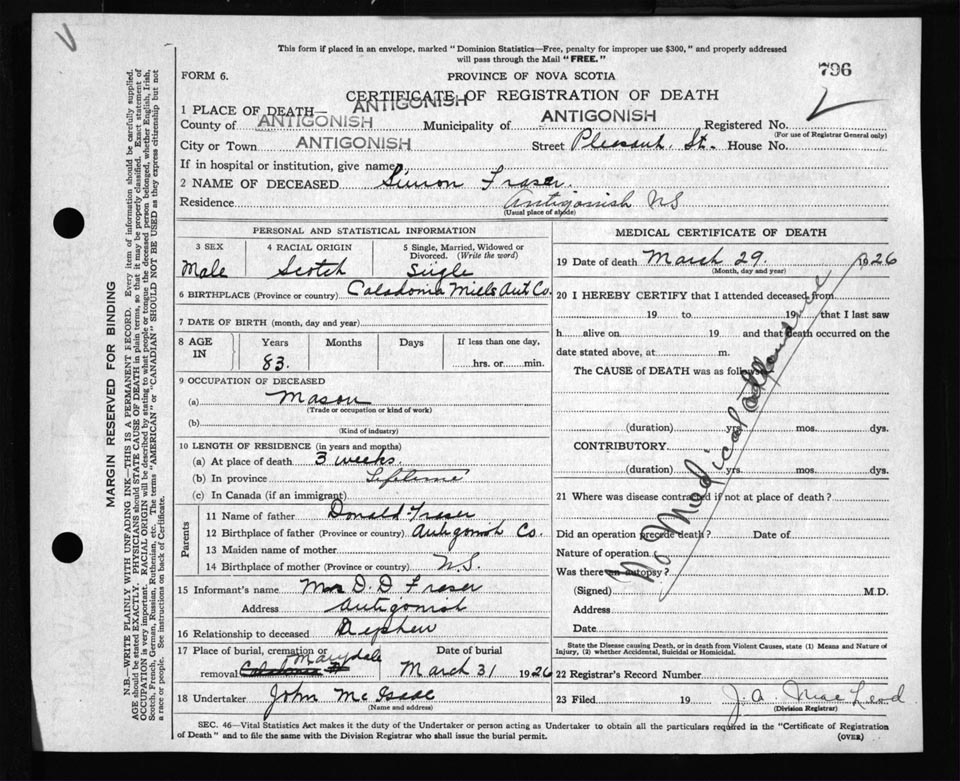 V
This form if placed in an envelope, marked "Dominion Statistics—Free, penalty for improper use $300," and properly addressed
will pass through the Mail "FREE."
FORM 6.
PROVINCE OF NOVA SCOTIA
796
CERTIFICATE OF REGISTRATION OF DEATH
1 PLACE OF DEATH— ANTIGONISH
County of ANTIGONISH Municipality of ANTIGONISH Registered No.
(For use of Registrar General only)
City or Town ANTIGONISH Street Pleasant St. House No.
If in hospital or institution, give name
2 NAME OF DECEASED Simon Fraser.
Residence Antigonish NS
(Usual place of abode)
PERSONAL AND STATISTICAL INFORMATION
3 SEX 4 RACIAL ORIGIN 5 Single, Married, Widowed or
Divorced. (Write the word)
Male Scotch Single
6 BIRTHPLACE (Province or country) Caledonia Mills Ant Co.
7 DATE OF BIRTH (month, day and year)
8 AGE IN Years Months Days If less than one day,
83. hrs. or min.
9 OCCUPATION OF DECEASED
(a) Mason
(Trade or occupation or kind of work)
(b)
(Kind of industry)
10 LENGTH OF RESIDENCE (in years and months)
(a) At place of death 3 weeks.
(b) In province Lifetime
(c) In Canada (if an immigrant)
Parents
11 Name of father Donald Fraser
12 Birthplace of father (Province or country) Antigonish Co.
13 Maiden name of mother
14 Birthplace of mother (Province or country) N.S.
15 Informant's name D. D Fraser
Address Antigonish
16 Relationship to deceased Nephew
17 Place of burial, cremation or Date of burial
removal Caledonia Marydale March 31 1926
18 Undertaker John McIsaac
(Name and address)
MEDICAL CERTIFICATE OF DEATH
19 Date of death March 29. 1926
(Month, day and year)
20 I HEREBY CERTIFY that I attended deceased from
19 to 19 that I last saw
h alive on 19 and that death occurred on
date stated above, at m.
The CAUSE of DEATH was as follows:
(duration) yrs. mos. dys.
CONTRIBUTORY
(duration) yrs. mos. dys.
No Medical attendance
21 Where was disease contracted if not at place of death?
Did an operation precede death? Date of
Nature of operation
Was there an autopsy?
(Signed) M.D.
Address
Date
State the Disease causing Death, or in death from Violent Causes, state (1) Means and Nature of
Injury, (2) whether Accidental, Suicidal or Homicidal.
22 Registrar's Record Number
23 Filed 19 J. A. MacLeod
(Division Registrar)
SEC. 46—Vital Statistics Act makes it the duty of the Undertaker or person acting as Undertaker to obtain all the particulars required in the "Certificate of Registration
of Death" and to file the same with the Division Registrar who shall issue the burial permit.
(OVER)
MARGIN RESERVED FOR BINDING
N.B.—WRITE PLAINLY WITH UNFADING INK—THIS IS A PERMANENT RECORD. Every item of information should be carefully supplied.
AGE should be stated EXACTLY. PHYSICIANS should STATE CAUSE OF DEATH in plain terms, so that it may be properly classified. Exact statement of
OCCUPATION is very important. RACIAL ORIGIN will be described by stating to what people or tongue the deceased person belonged, whether English, Irish,
Scotch, French, German, Russian, Ruthenian, etc. The terms "AMERICAN" or "CANADIAN" SHOULD NOT BE USED as they express citizenship but not
a race or people. See instructions on back of Certificate.